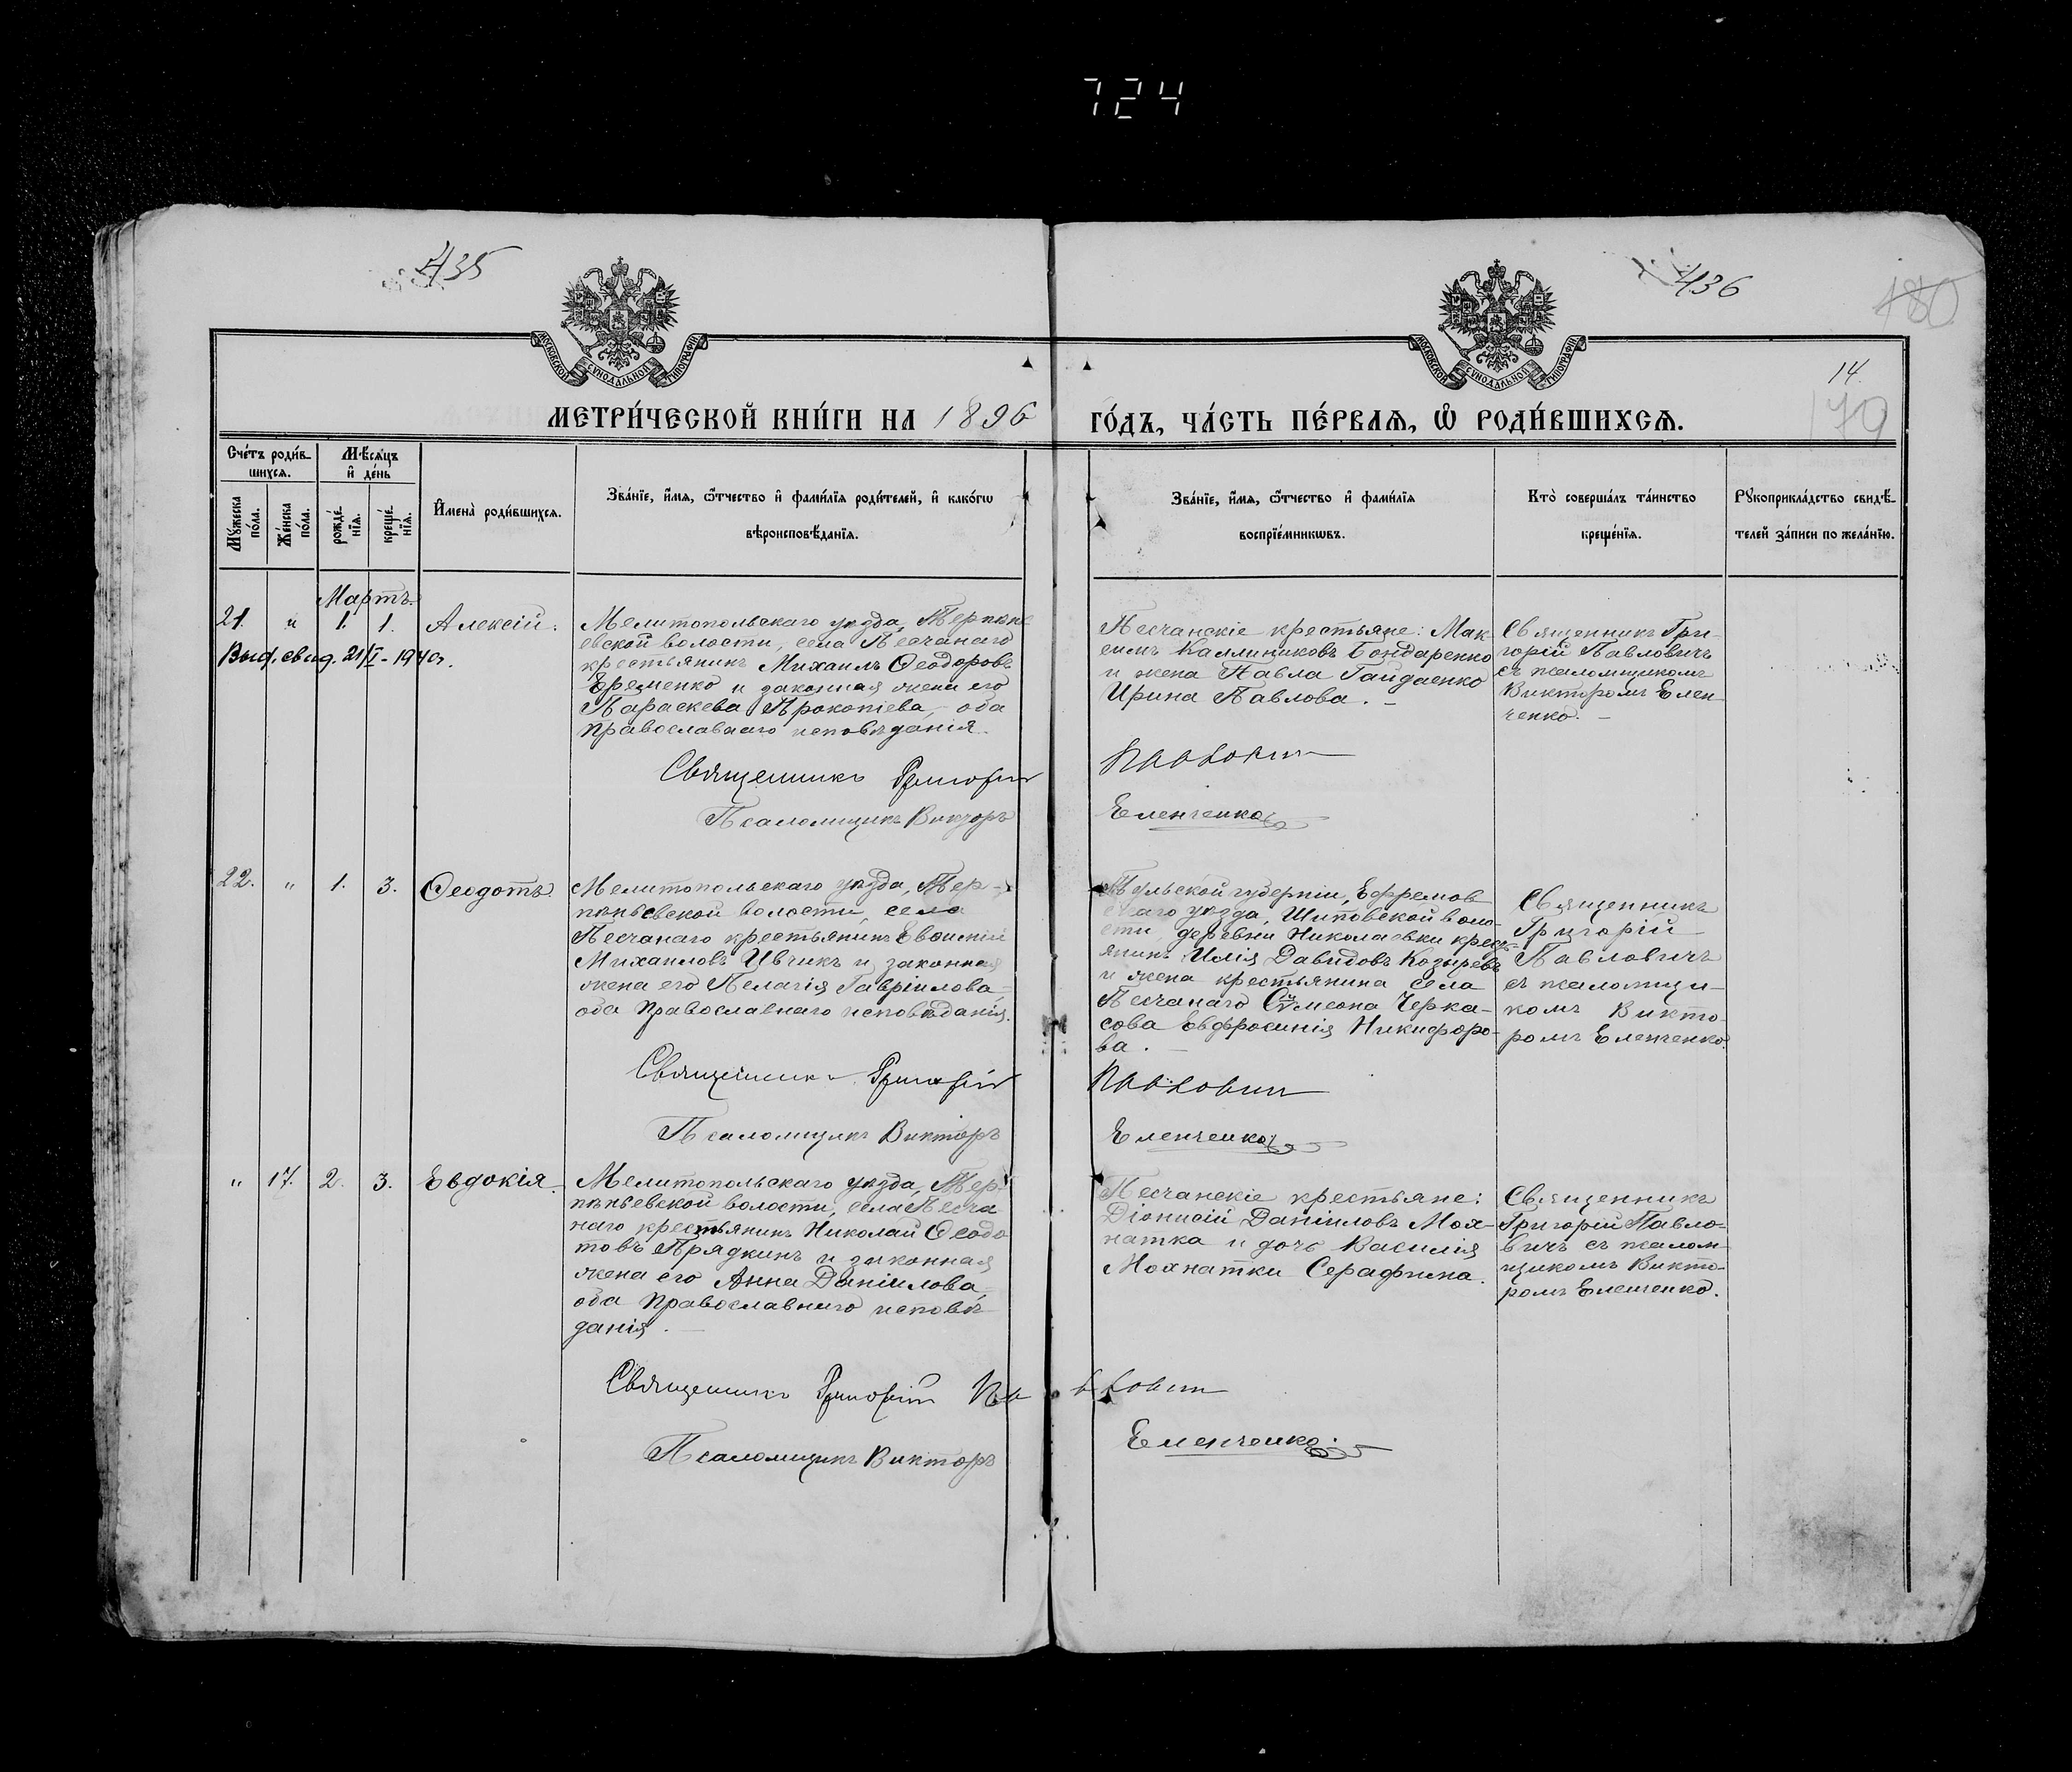 724
435
436
180
МОСКОВСКОЙ СѴНОДАЛЬНОЙ ТИПОГРАФІИ
МОСКОВСКОЙ СѴНОДАЛЬНОЙ ТИПОГРАФІИ
14.
179
МЕТРИ́ЧЕСКОЙ КНИ́ГИ НА 1896
ГО́ДЪ, ЧА́СТЬ ПЕ́РВАѦ, Ѡ҆ РОДИ́ВШИХСѦ.
Сче́тъ роди́в-
шихсѧ.
Мꙋ́жеска по́ла.
Же́нска по́ла.
Мѣ́сѧцъ
и҆ де́нь
рожде́-
нїѧ.
креще́-
нїѧ.
И҆мена̀ роди́вшихсѧ.
Зва́нїе, и҆́мѧ, ѻ҆́тчество и҆ фами́лїѧ роди́телей, и҆ како́гѡ
вѣроисповѣ́данїѧ.
Зва́нїе, и҆́мѧ, ѻ҆́тчество и҆ фами́лїѧ
воспрїе́мникѡвъ.
Кто̀ соверша́лъ та́инство
креще́нїѧ.
Рꙋкоприкла́дство свидѣ́-
телей за́писи по жела́нїю.
Мартъ.
21. " 1. 1. Алексій.
Выд. свид. 21/I - 1940г.
Мелитопольскаго уѣзда, Терпѣнь
евской волости, села Песчанаго
крестьянинъ Михаилъ Ѳеодоровъ
Еременко и законная жена его
Параскева Прокопіева, оба
православнаго исповѣданія.
Священникъ Григорій
Псаломщикъ Викторъ
Песчанскіе крестьяне: Мак-
симъ Каллиниковъ Бондаренко
и жена Павла Гайдаенко
Ирина Павлова. -
Павловичъ
Еленченко
Священникъ Гри-
горій Павловичъ
съ псаломщикомъ
Викторомъ Елен-
ченко. -
22. " 1. 3. Ѳеодотъ.
Мелитопольскаго уѣзда, Тер-
пѣньевской волости, села
Песчанаго крестьянинъ Евѳимій
Михаиловъ Ивчикъ и законная
жена его Пелагія Гавріилова,
оба православнаго исповѣданія.
Священникъ Григорій
Псаломщикъ Викторъ
Тульской губерніи, Ефремов
скаго уѣзда, Шиповской воло-
сти, деревни Николаевки крест-
янинъ Илія Давидовъ Козыревъ
и жена крестьянина села
Песчанаго Симеона Черка-
сова Евфросинія Никифоро-
ва. -
Павловичъ
Еленченко
Священникъ
Григорій
Павловичъ
съ псаломщи-
комъ Викто-
ромъ Еленченко.
" 17. 2. 3. Евдокія.
Мелитопольскаго уѣзда, Тер-
пѣньевской волости, села Песча
наго крестьянинъ Николай Ѳеодо
товъ Прядкинъ и законная
жена его Анна Даніилова,
оба православнаго исповѣ-
данія. -
Священникъ Григорій Павловичъ
Псаломщикъ Викторъ
Песчанскіе крестьяне:
Діонисій Даніиловъ Мох-
натка и дочь Василія
Мохнатки Серафима.
Еленченко
Священникъ
Григорій Павло-
вичъ съ псалом-
щикомъ Викто-
ромъ Еленченко.